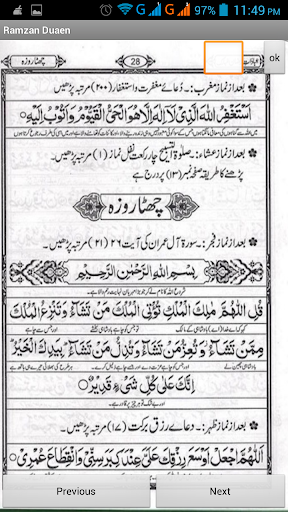 97% 11:49 PM
Ramzan Duaen
چھٹا روزہ 28
ok
بعد از نماز مغرب۔ دُعائے مغفرت و استغفار (۲۰۰) مرتبہ پڑھیں۔
اَسْتَغْفِرُ اللّٰهَ الَّذِیْ لَآ اِلٰهَ اِلَّا هُوَ الْحَیُّ الْقَیُّوْمُ وَ اَتُوْبُ اِلَیْهِ
بعد از نماز عشاء۔ صلوٰۃ التسبیح چار رکعت نفل نماز (۱) مرتبہ پڑھیں۔
پڑھنے کا طریقہ صفحہ نمبر (۱۳) پر درج ہے
چھٹا روزہ
بعد از نماز فجر۔ سورۃ آل عمران کی آیت ۲۶ (۲۱) مرتبہ پڑھیں۔
بِسْمِ اللّٰهِ الرَّحْمٰنِ الرَّحِیْمِ
شروع اللہ کے نام سے جو بڑا مہربان نہایت رحم والا ہے۔
قُلِ اللّٰهُمَّ مٰلِكَ الْمُلْكِ تُؤْتِی الْمُلْكَ مَنْ تَشَآءُ وَتَنْزِعُ الْمُلْكَ
مِمَّنْ تَشَآءُ وَتُعِزُّ مَنْ تَشَآءُ وَتُذِلُّ مَنْ تَشَآءُ بِیَدِكَ الْخَیْرُ
اِنَّكَ عَلٰی كُلِّ شَیْءٍ قَدِیْرٌ
بعد از نماز ظہر۔ دعائے رزق برکت (۱۷) مرتبہ پڑھیں۔
اَللّٰهُمَّ اجْعَلْ اَوْسَعَ رِزْقِكَ عَلَیَّ عِنْدَ كِبَرِ سِنِّیْ وَ انْقِطَاعِ عُمُرِیْ
Previous Next